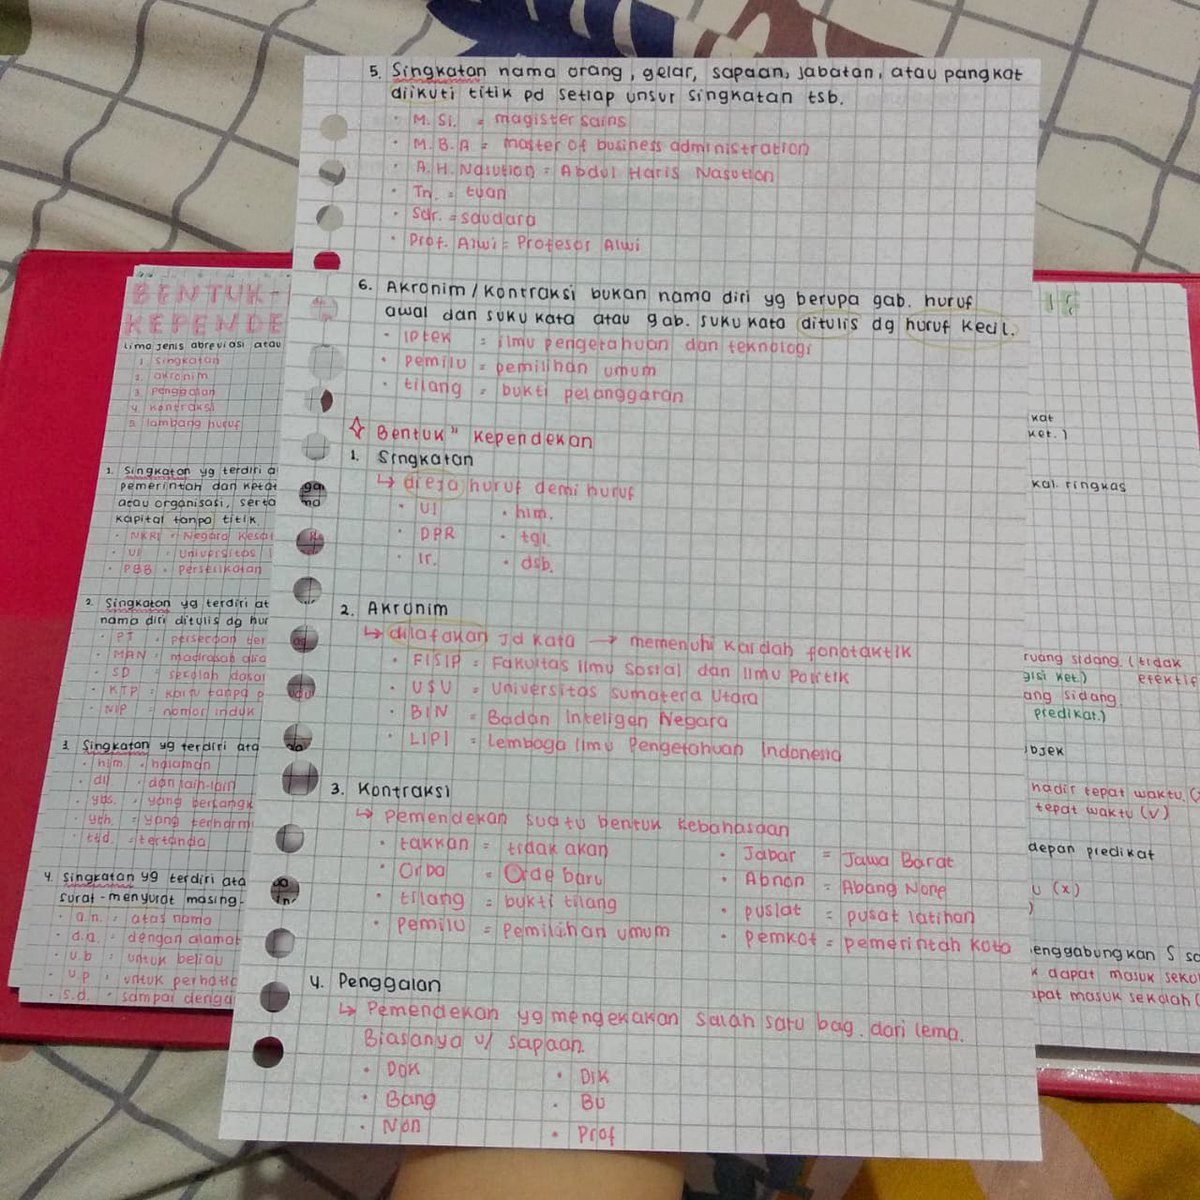 5. Singkatan nama orang, gelar, sapaan, jabatan, atau pangkat
diikuti titik pd setiap unsur singkatan tsb.
• M. Si. = magister sains
• M.B.A = master of business administration
• A.H. Nasution = Abdul Haris Nasution
• Tn. = tuan
• Sdr. = saudara
• Prof. Alwi = Profesor Alwi
6. Akronim / kontraksi bukan nama diri yg berupa gab. huruf
awal dan suku kata atau gab. suku kata ditulis dg huruf kecil.
• iptek = ilmu pengetahuan dan teknologi
• pemilu = pemilihan umum
• tilang = bukti pelanggaran
Bentuk" kependekan
1. Singkatan
↳ dieja huruf demi huruf
• UI • hlm.
• DPR • tgl.
• Ir. • dsb.
2. Akronim
↳ dilafakan jd kata → memenuhi kaidah fonotaktik
• FISIP = Fakultas Ilmu Sosial dan Ilmu Politik
• USU = Universitas Sumatera Utara
• BIN = Badan Inteligen Negara
• LIPI = Lembaga Ilmu Pengetahuan Indonesia
3. Kontraksi
↳ Pemendekan suatu bentuk kebahasaan
• takkan = tidak akan • Jabar = Jawa Barat
• Orba = Orde baru • Abnon = Abang None
• tilang = bukti tilang • puslat = pusat latihan
• Pemilu = Pemilihan umum • Pemkot = pemerintah kota
4. Penggalan
↳ Pemendekan yg mengekalkan salah satu bag. dari lema.
Biasanya u/ sapaan.
• Dok • Dik
• Bang • Bu
• Non • Prof
BENTUK-
KEPENDE
Lima jenis abreviasi atau
1. singkatan
2. akronim
3. penggalan
4. kontraksi
5. lambang huruf
1. Singkatan yg terdiri a
pemerintah dan ketat
atau organisasi, serta
kapital tanpa titik
• NKRI = Negara Kesat
• UI = Universitas I
• PBB = Perserikatan
2. Singkatan yg terdiri at
nama diri ditulis dg hur
• PT = perseroan ter
• MAN = madrasah alia
• SD = sekolah dasar
• KTP = kartu tanpa p
• NIP = nomor induk
3. Singkatan yg terdiri ata
• hlm = halaman
• dll = dan lain-lain
• ybs. = yang bersangk
• yth. = yang terhorm
• ttd. = tertanda
4. Singkatan yg terdiri ata
surat-menyurat masing-
• a.n. = atas nama
• d.a. = dengan alamat
• u.b = untuk beliau
• u.p = untuk perhatia
• s.d. = sampai denga
kat
ket.)
kal. ringkas
ruang sidang. (tidak
gisi ket.) efektif
ang sidang
predikat.)
objek
hadir tepat waktu. (
tepat waktu (v)
depan predikat
u (x)
)
enggabungkan S sa
k dapat masuk sekol
apat masuk sekolah (